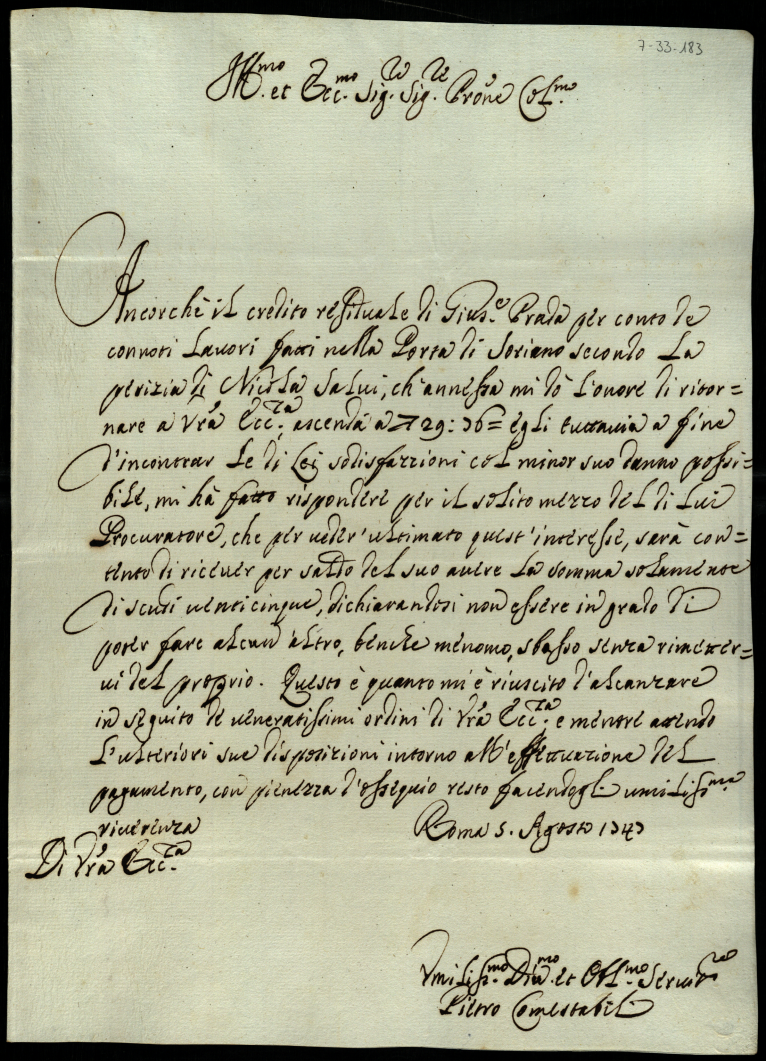 7-33-183
Ill.mo et Ecc.mo Sig.re Sig.re Prone Col.mo
Ancorchè il credito residuale di Gius.e Prada per conto de
connoti Lavori fatti nella Porta di Soriano secondo La
perizia di Nicola Salvi, ch'annessa mi dò L'onore di ritor=
nare a Vrã Ecc.za, ascenda a 29:36= egli tuttavia a fine
d'incontrar Le di Lei sodisfazzioni col minor suo danno possi=
bile, mi hà fatto rispondere per il solito mezzo del di Lui
Procuratore, che per veder'ultimato quest'interesse, sarà con=
tento di ricever per saldo del suo avere La somma solamente
di scudi venticinque, dichiarandosi non essere in grado di
poter fare alcun'altro, benche menomo, sbasso senza rimetter=
vi del proprio. Questo è quanto mi è riuscito d'alcanzare
in seguito de veneratissimi ordini di Vrã Ecc.za e mentre attendo
L'ulteriori sue disposizioni intorno all'effettuazione del
pagamento, con pienezza d'ossequio resto facendogli umiliss.ma
riverenza
Roma 5. Agosto 1747
Di Vrã Ecc.za
Vmiliss.mo Div.mo et Obl.mo Servit.re
Pietro Comestabili